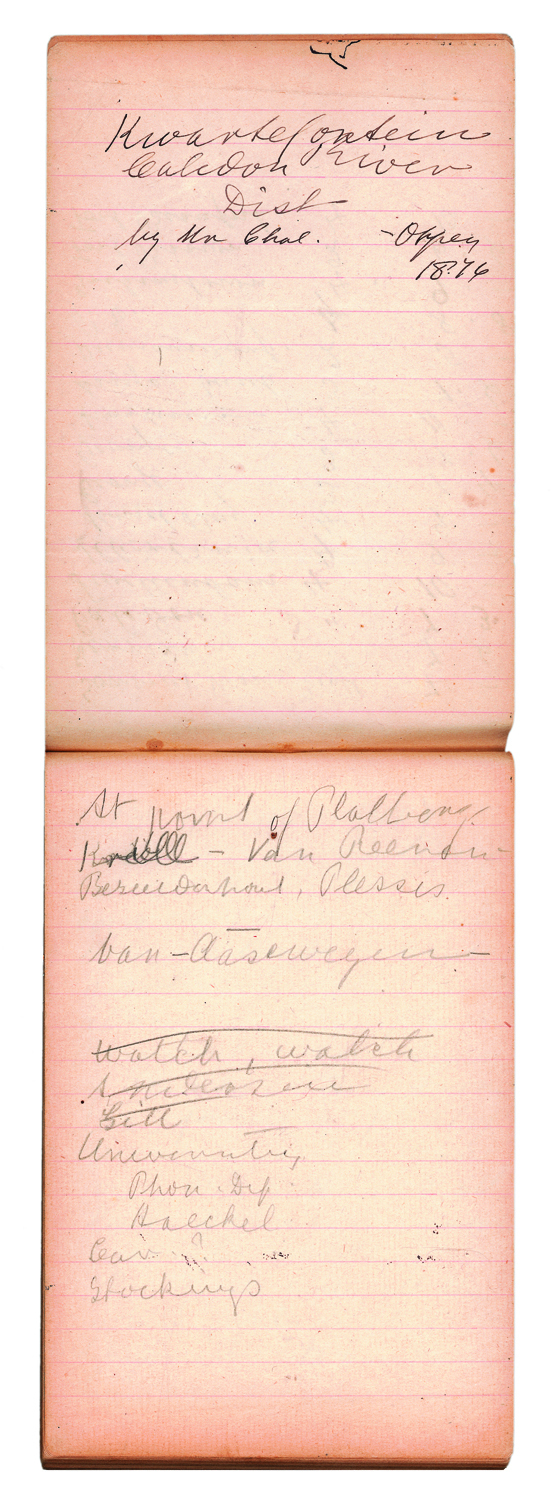 Kwartelfontein
Caledon River
Dist
by Mr Chal. - Orpen
1876
At point of Platberg
- Van Reenen -
Bezuidenhout, Plessis.
Van - Aaswegen -
watch, watch
Anderson
Gill
University
Phon. Dep.
Haeckel
Cav ?
Stockings